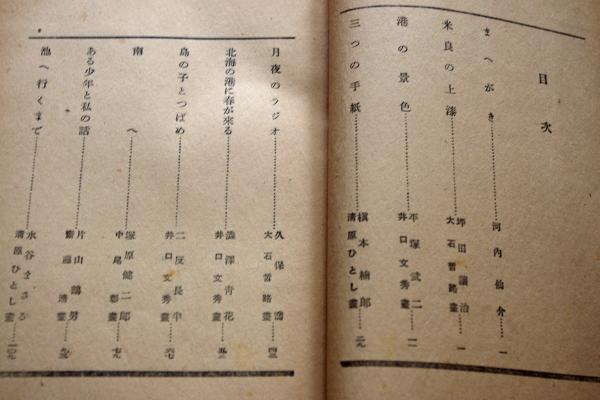 目次
まへがき……河内仙介……一
米良の上漆……坪田讓治……一
大石哲路畫
港の景色……平塚武二……一一
井口文秀畫
三つの手紙……槇本楠郎……二九
淸原ひとし畫
月夜のラジオ……久保喬……四三
大石哲路畫
北海の港に春が來る……澁澤青花……五三
井口文秀畫
島の子とつばめ……二反長半……六七
井口文秀畫
南へ……塚原健二郎……七九
中尾彰畫
ある少年と私の話……片山鵠男……九三
齋藤淸畫
池へ行くまで……水谷まさる……一〇九
淸原ひとし畫